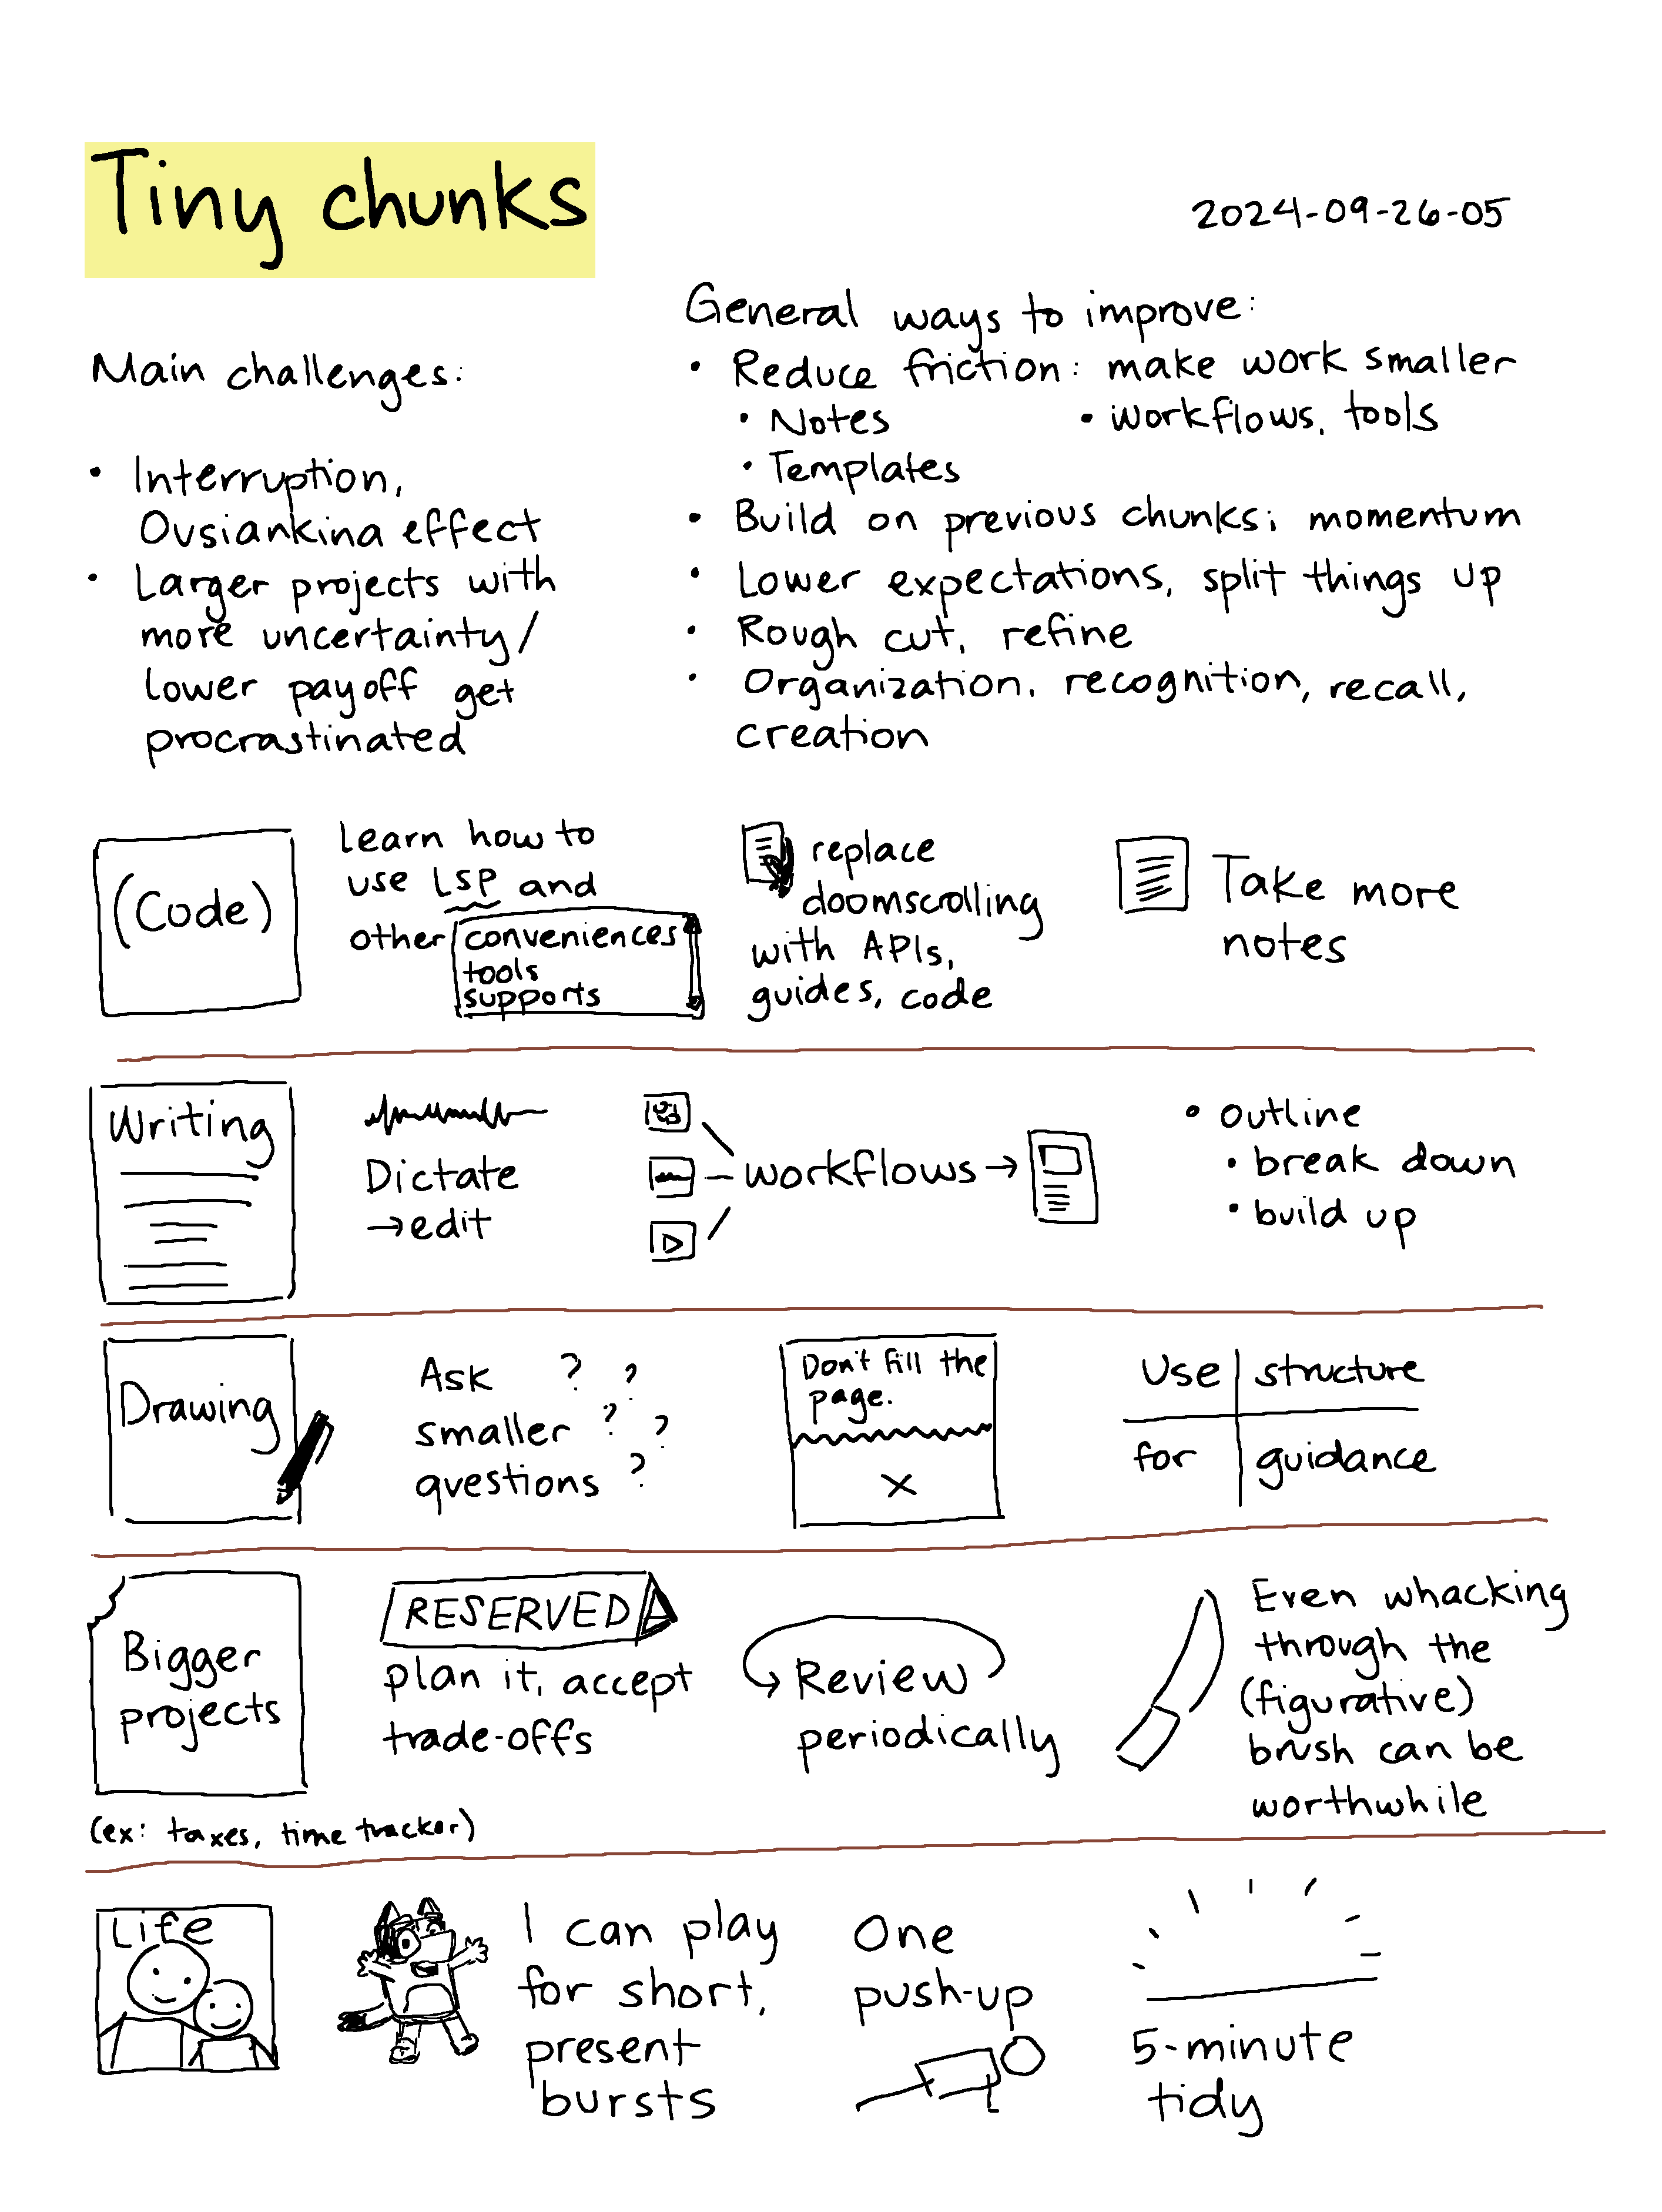 Tiny chunks
2024-09-26-05
Main challenges:
• Interruption,
Ovsiankina effect
• Larger projects with
more uncertainty/
lower payoff get
procrastinated
General ways to improve:
• Reduce friction: make work smaller
• Notes
• Workflows, tools
• Templates
• Build on previous chunks; momentum
• Lower expectations, split things up
• Rough cut, refine
• Organization, recognition, recall,
creation
(Code)
Learn how to
use LSP and
other conveniences
tools
supports
replace
doomscrolling
with APIs,
guides, code
Take more
notes
Writing
Dictate
→edit
workflows →
• outline
• break down
• build up
Drawing
Ask ? ?
smaller ? ?
questions ?
Don't fill the
page.
X
Use structure
for guidance
Bigger
projects
(ex: taxes, time tracker)
RESERVED
plan it, accept
trade-offs
Review
periodically
Even whacking
through the
(figurative)
brush can be
worthwhile
Life
I can play
for short,
present
bursts
One
push-up
5-minute
tidy